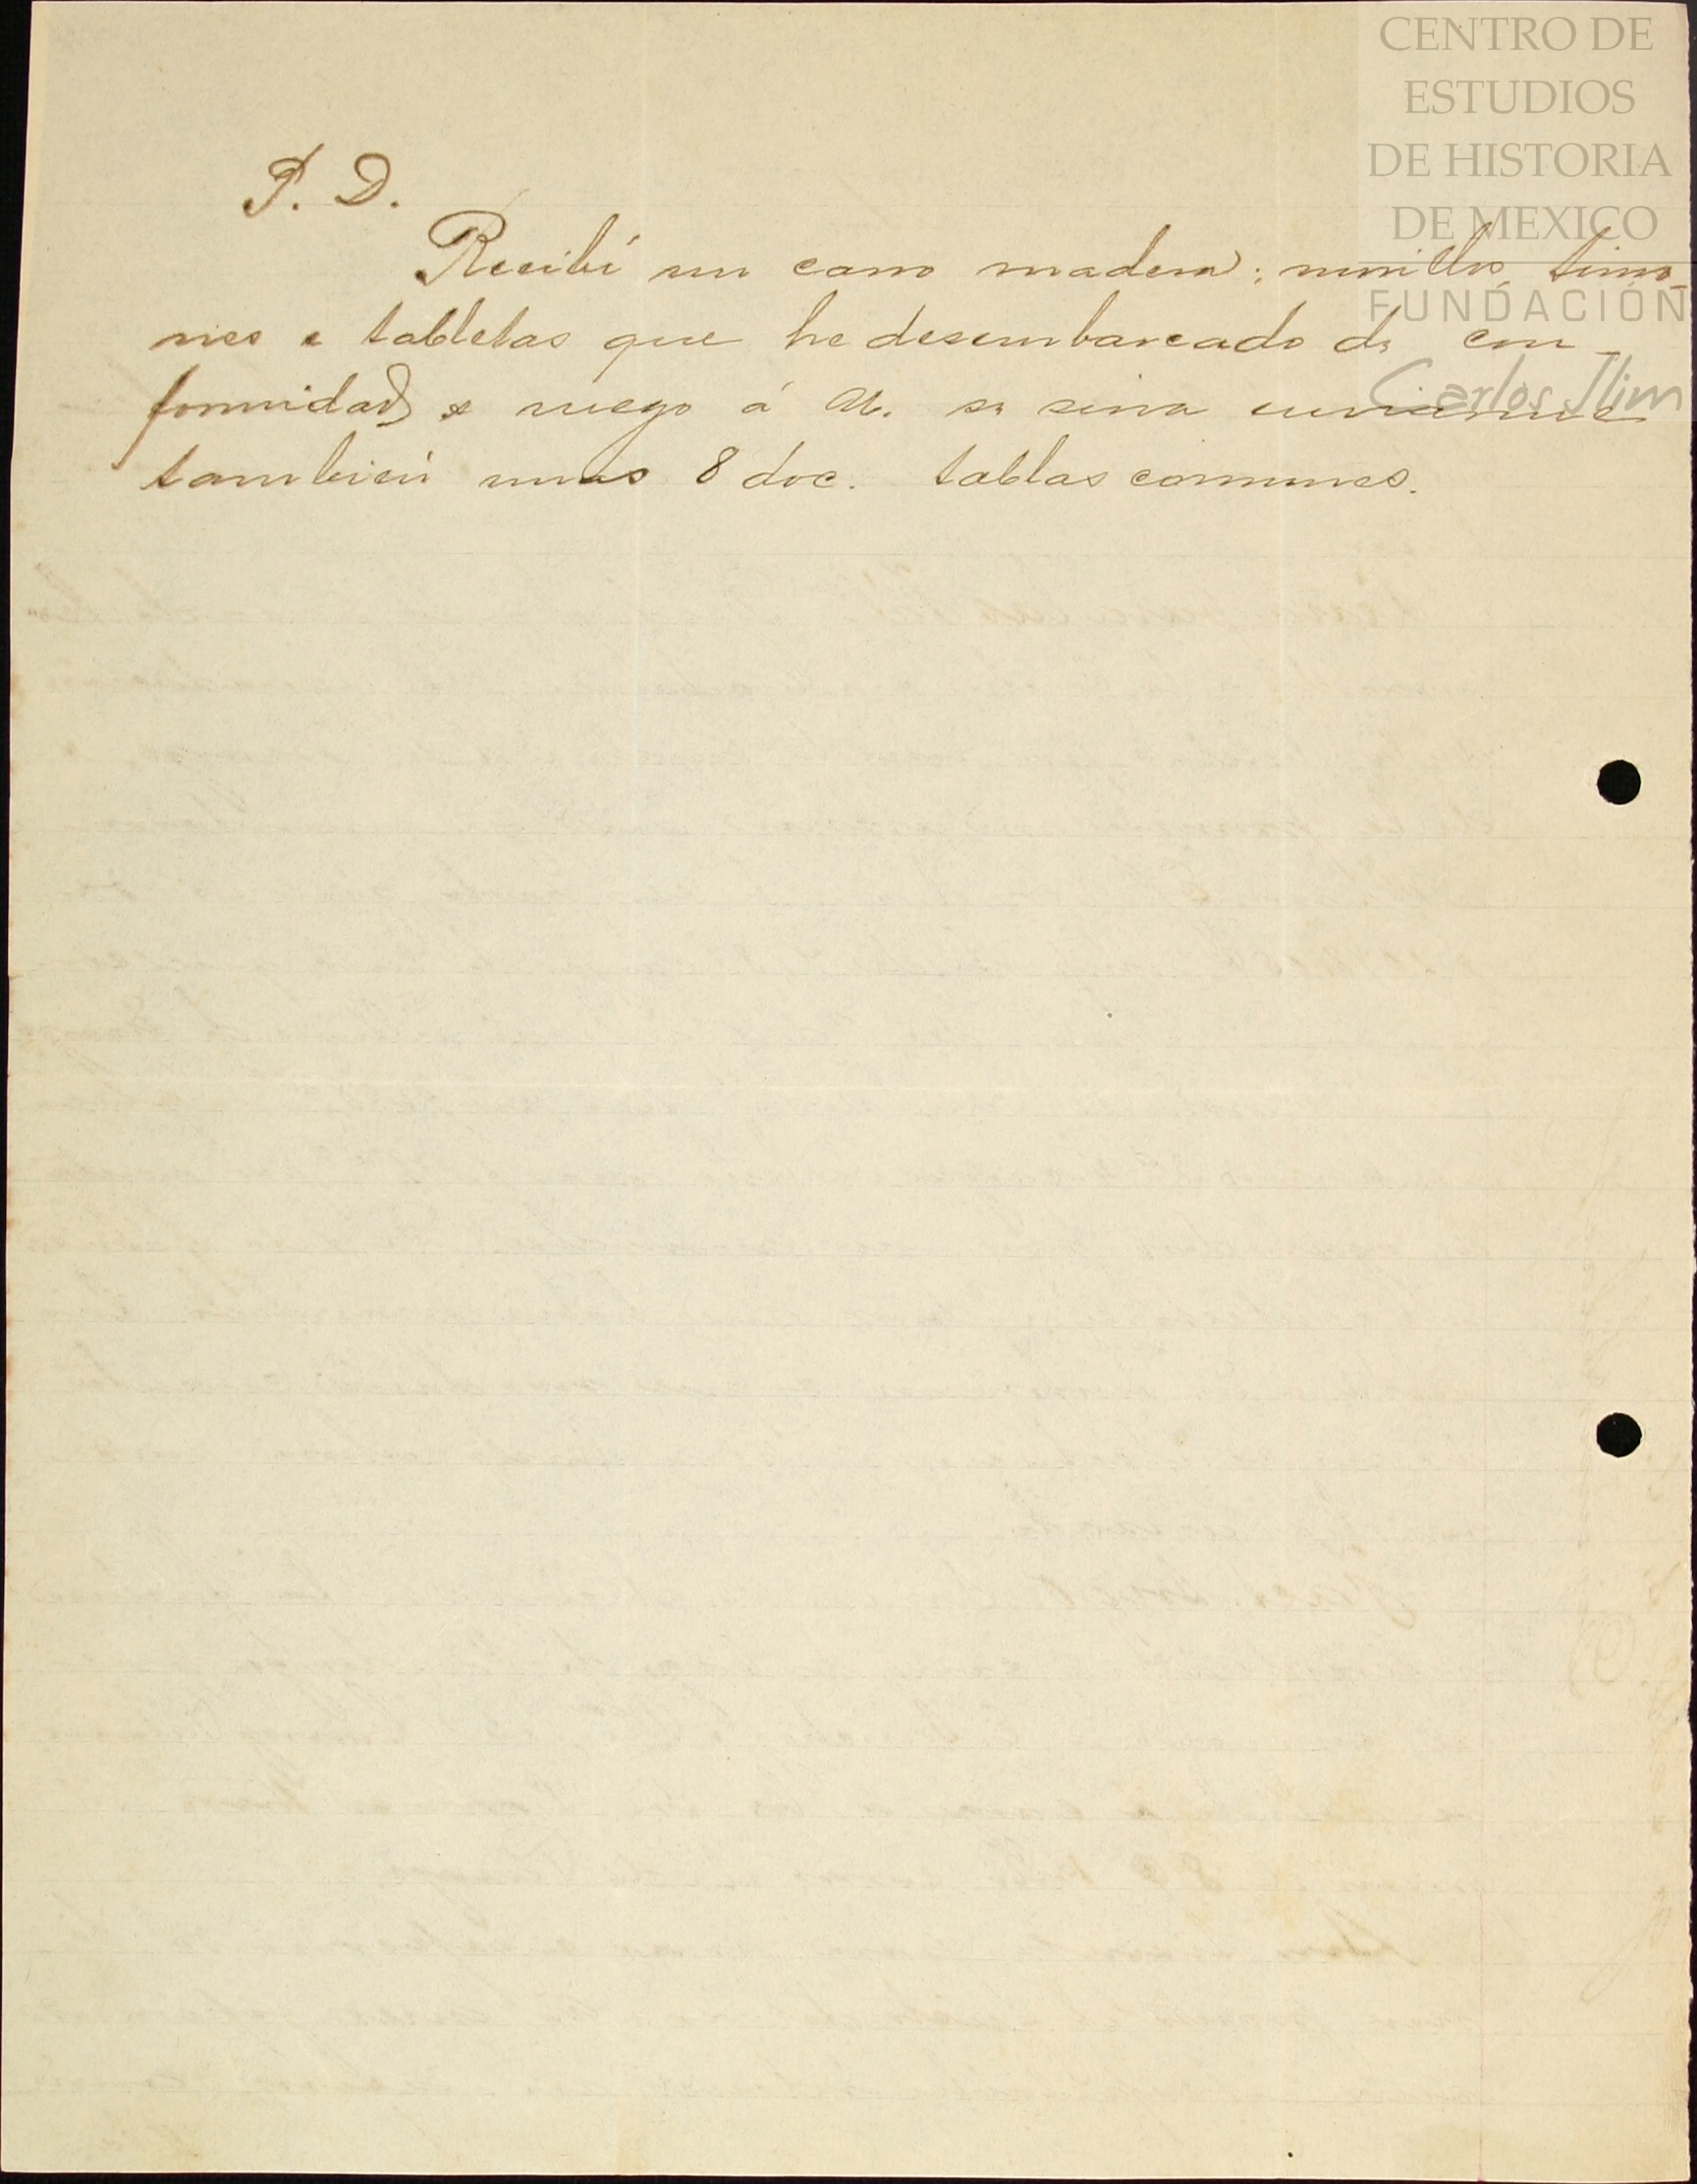 P. D.
Recibí un carro madera: morillos, timo-
nes e tabletas que he desembarcado de con-
formidad e ruego á U. se sirva enviarme
también unas 8 doc. tablas comunes.
CENTRO DE
ESTUDIOS
DE HISTORIA
DE MEXICO
FUNDACIÓN
Carlos Slim